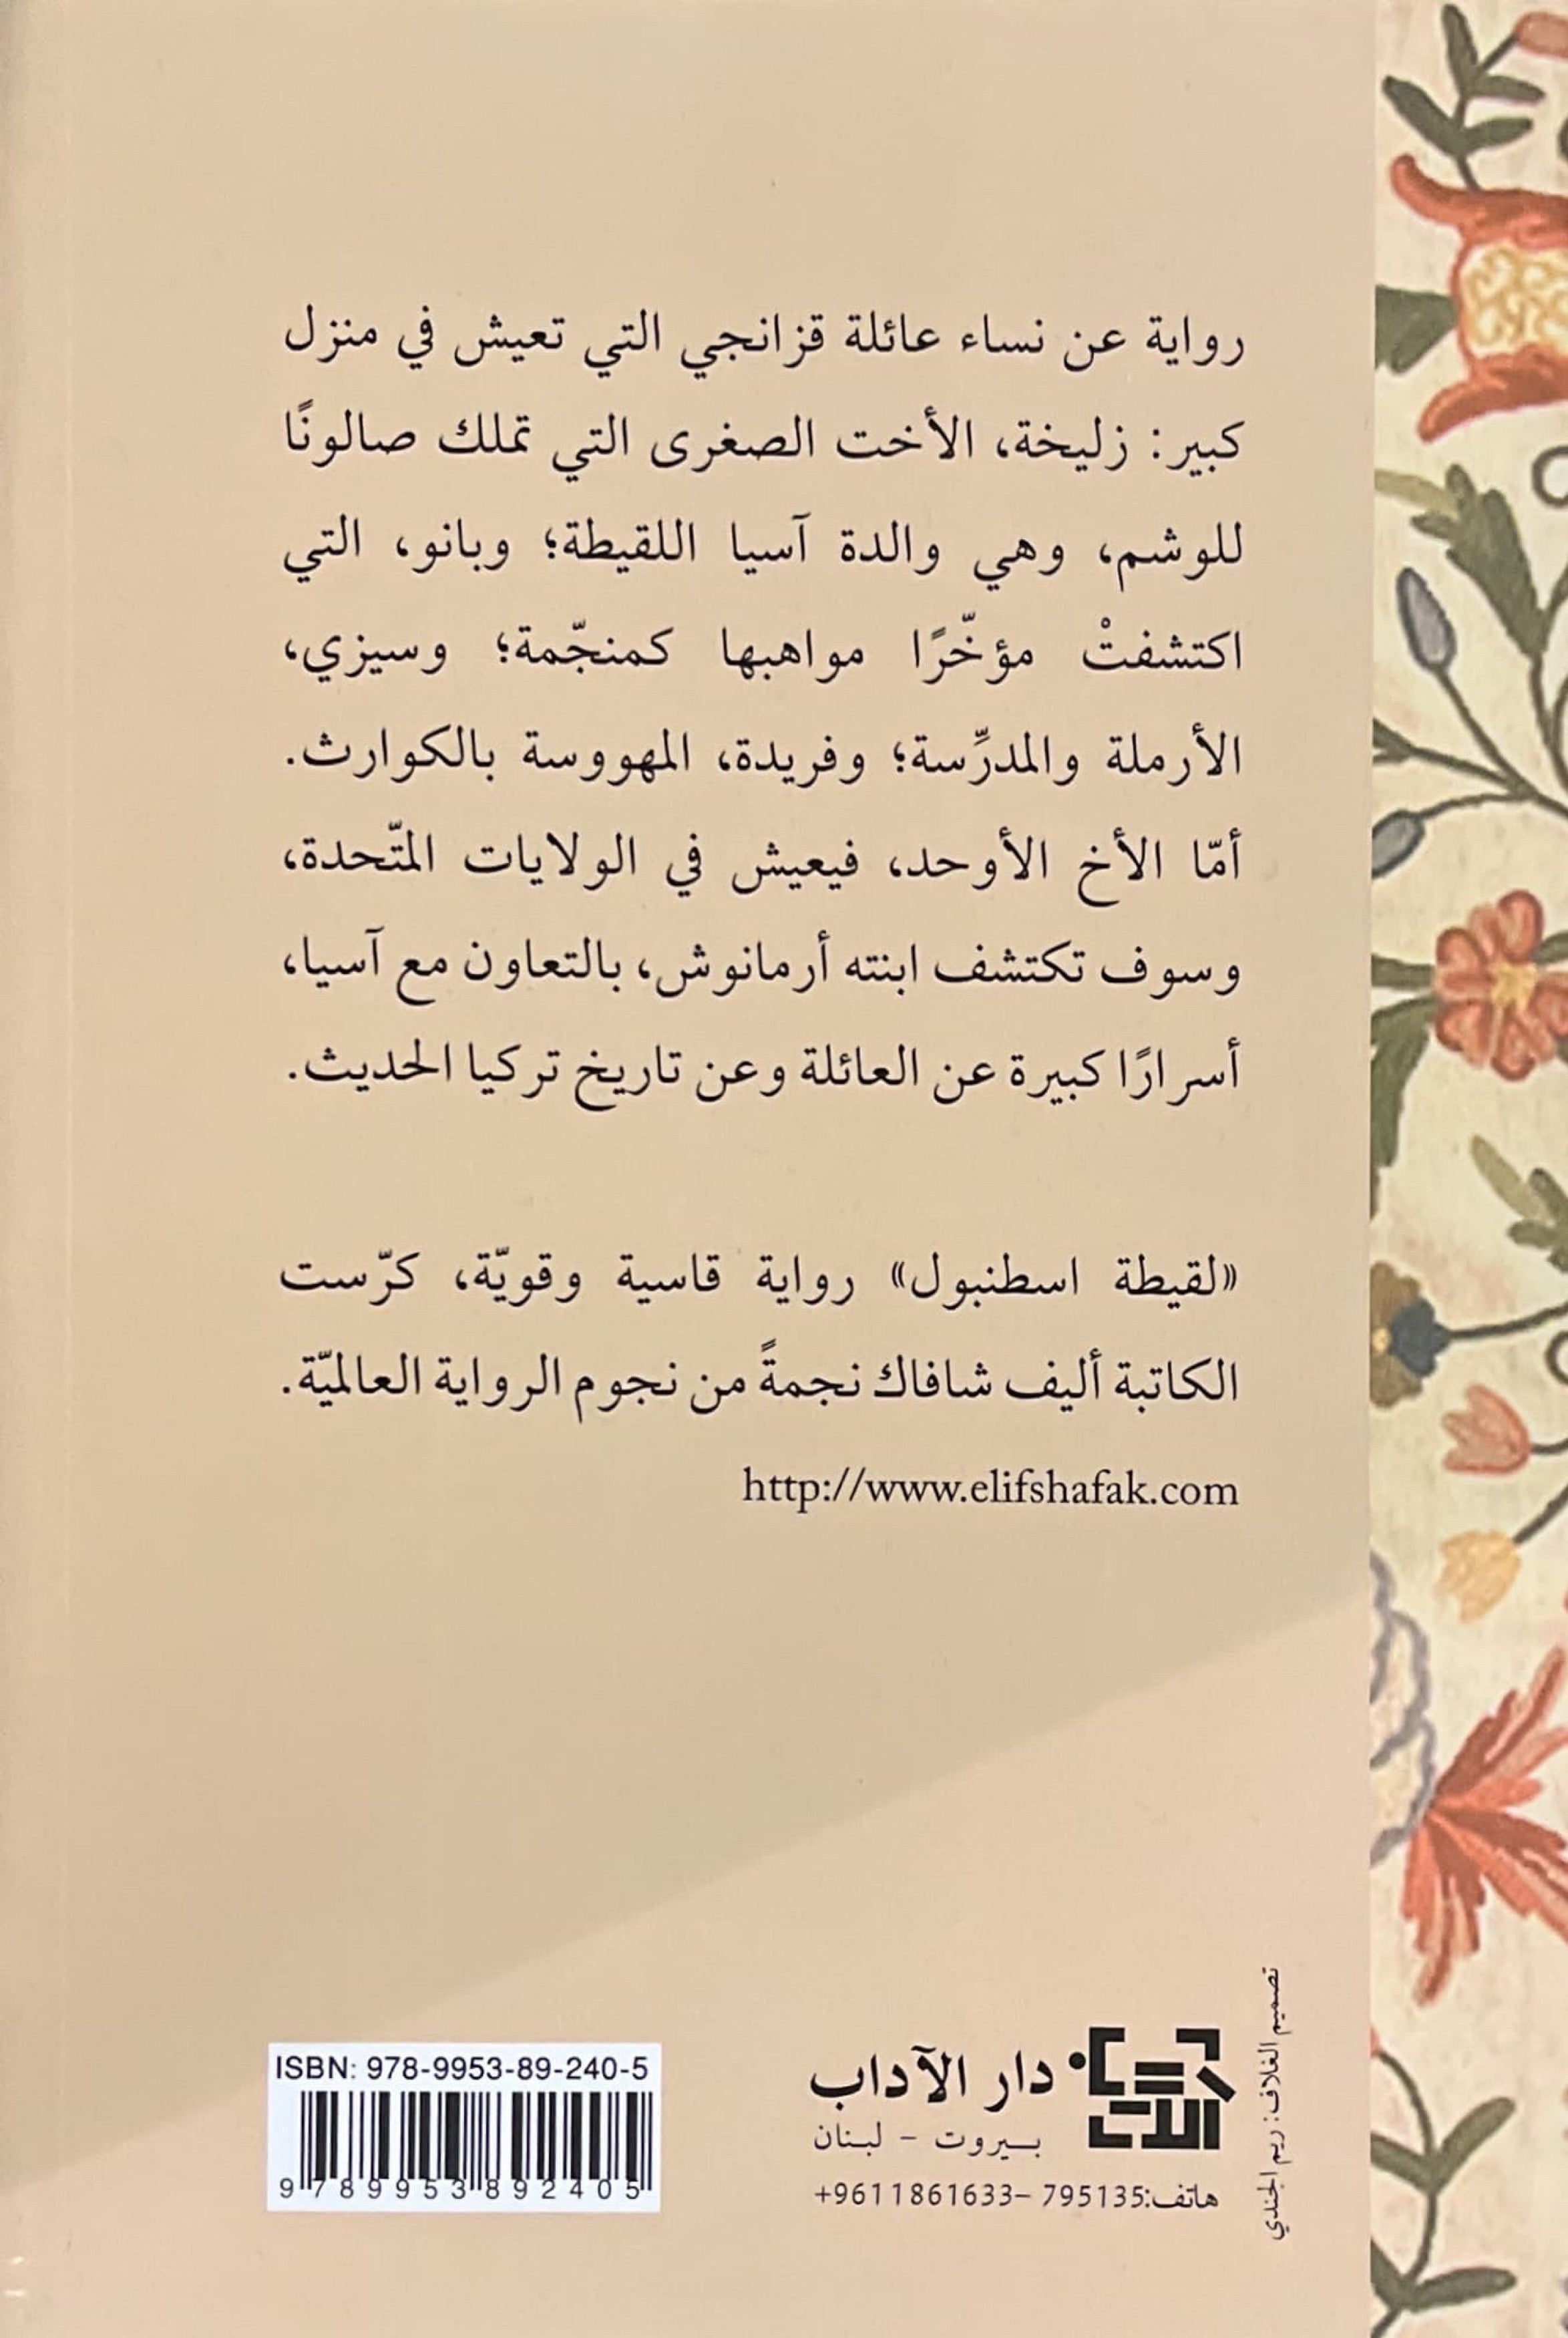 رواية عن نساء عائلة قزانجي التي تعيش في منزل
كبير: زليخة، الأخت الصغرى التي تملك صالونًا
للوشم، وهي والدة آسيا اللقيطة؛ وبانو، التي
اكتشفتْ مؤخّرًا مواهبها كمنجّمة؛ وسيزي،
الأرملة والمدرِّسة؛ وفريدة، المهووسة بالكوارث.
أمّا الأخ الأوحد، فيعيش في الولايات المتّحدة،
وسوف تكتشف ابنته أرمانوش، بالتعاون مع آسيا،
أسرارًا كبيرة عن العائلة وعن تاريخ تركيا الحديث.
«لقيطة اسطنبول» رواية قاسية وقويّة، كرّست
الكاتبة أليف شافاك نجمةً من نجوم الرواية العالميّة.
http://www.elifshafak.com
تصميم الغلاف: ريم الجندي
دار الآداب
دار الآداب
بيروت - لبنان
هاتف:795135 –861633 9611+
ISBN: 978-9953-89-240-5
9 789953 892405